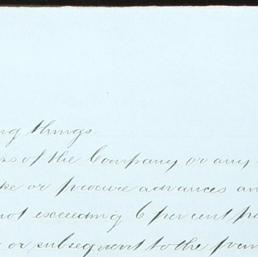 things
of the Company or any
or procure advances
not exceeding 6 per cent
or subsequent to the